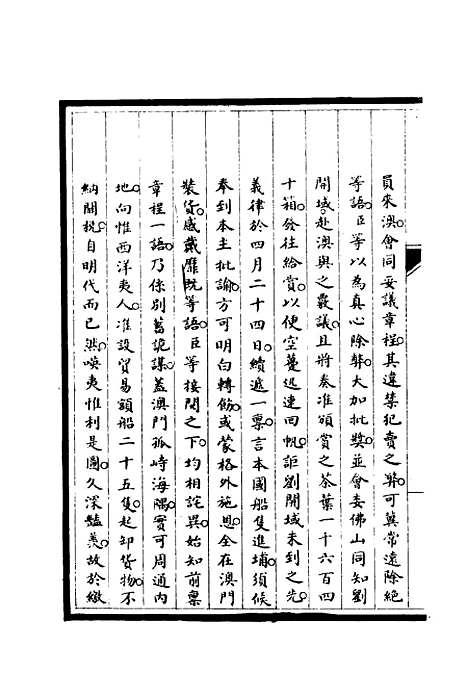 員來澳會同妥議章程其違禁犯賣之弊可冀常遠除絕
等語臣等以為真心除弊大加批奬並會委佛山同知劉
開域赴澳與之覈議且將奏准頒賞之茶葉一千六百四
十箱發往給賞以便空躉迅速回帆詎劉開域未到之先
義律於四月二十四日續遞一稟言本國船隻進埔須候
奉到本主批諭方可明白轉飭或蒙格外施恩全在澳門
裝貨感戴靡旣等語臣等接閱之下均相詫異始知前稟
章程一語乃係別蓄詭謀蓋澳門孤峙海隅實可周通內
地向惟西洋夷人准設貿易額船二十五隻起卸貨物不
納關稅自明代而已然㗸夷惟利是圖久深豔羨故於繳